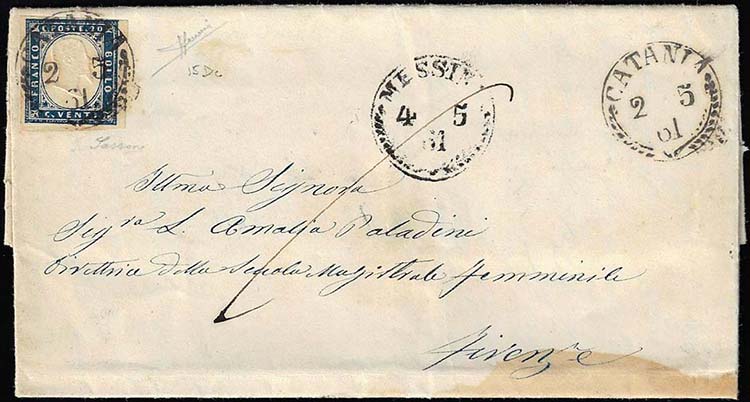 C. POSTE. 20
FRANCO
BOLLO
C. VENTI
CATANIA
2 5
61
15Dc
MESSIN
4 5
61
CATANIA
2 5
61
Illma Signora
Sigra L. Amalia Paladini
Direttrice della Scuola Magistrale femminile
Firenze